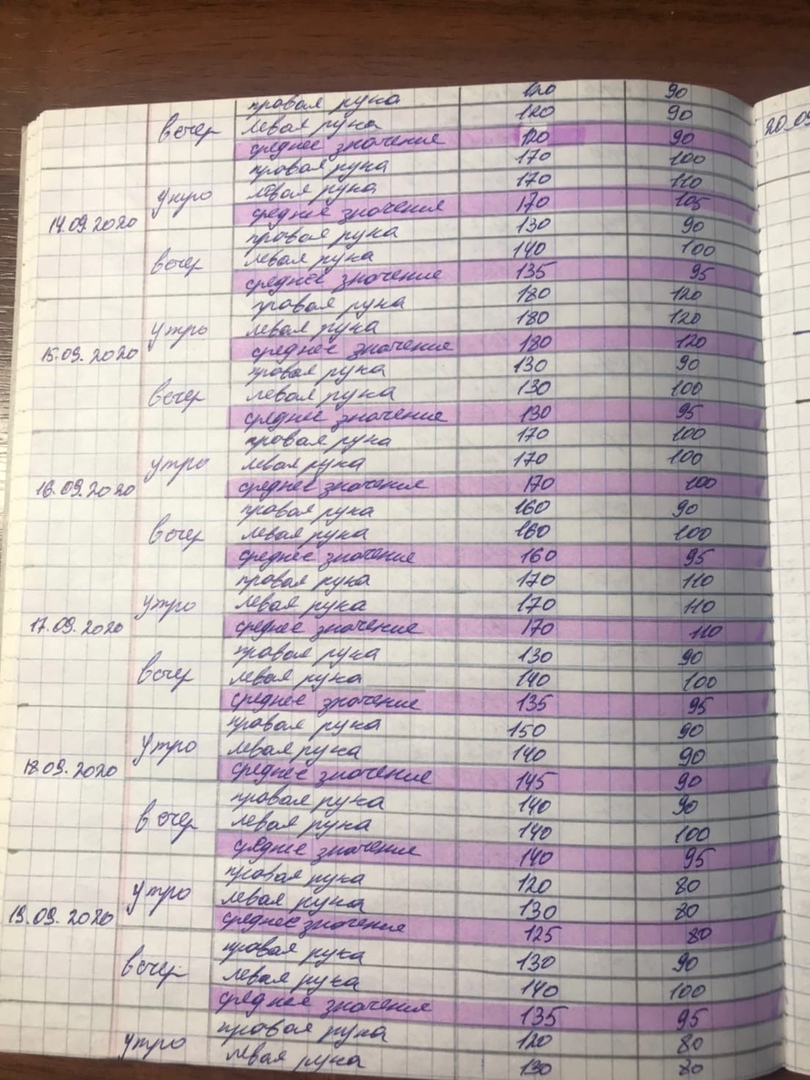 правая рука 120 90
вечер левая рука 120 90
среднее значение 120 90
правая рука 170 100
утро левая рука 170 110
14.09.2020 среднее значение 170 105
правая рука 130 90
вечер левая рука 140 100
среднее значение 135 95
правая рука 180 120
утро левая рука 180 120
15.09.2020 среднее значение 180 120
правая рука 130 90
вечер левая рука 130 100
среднее значение 130 95
правая рука 170 100
утро левая рука 170 100
16.09.2020 среднее значение 170 100
правая рука 160 90
вечер левая рука 160 100
среднее значение 160 95
правая рука 170 110
утро левая рука 170 110
17.09.2020 среднее значение 170 110
правая рука 130 90
вечер левая рука 140 100
среднее значение 135 95
правая рука 150 90
утро левая рука 140 90
18.09.2020 среднее значение 145 90
правая рука 140 90
вечер левая рука 140 100
среднее значение 140 95
правая рука 120 80
утро левая рука 130 80
19.09.2020 среднее значение 125 80
правая рука 130 90
вечер левая рука 140 100
среднее значение 135 95
правая рука 120 80
утро левая рука 130 80